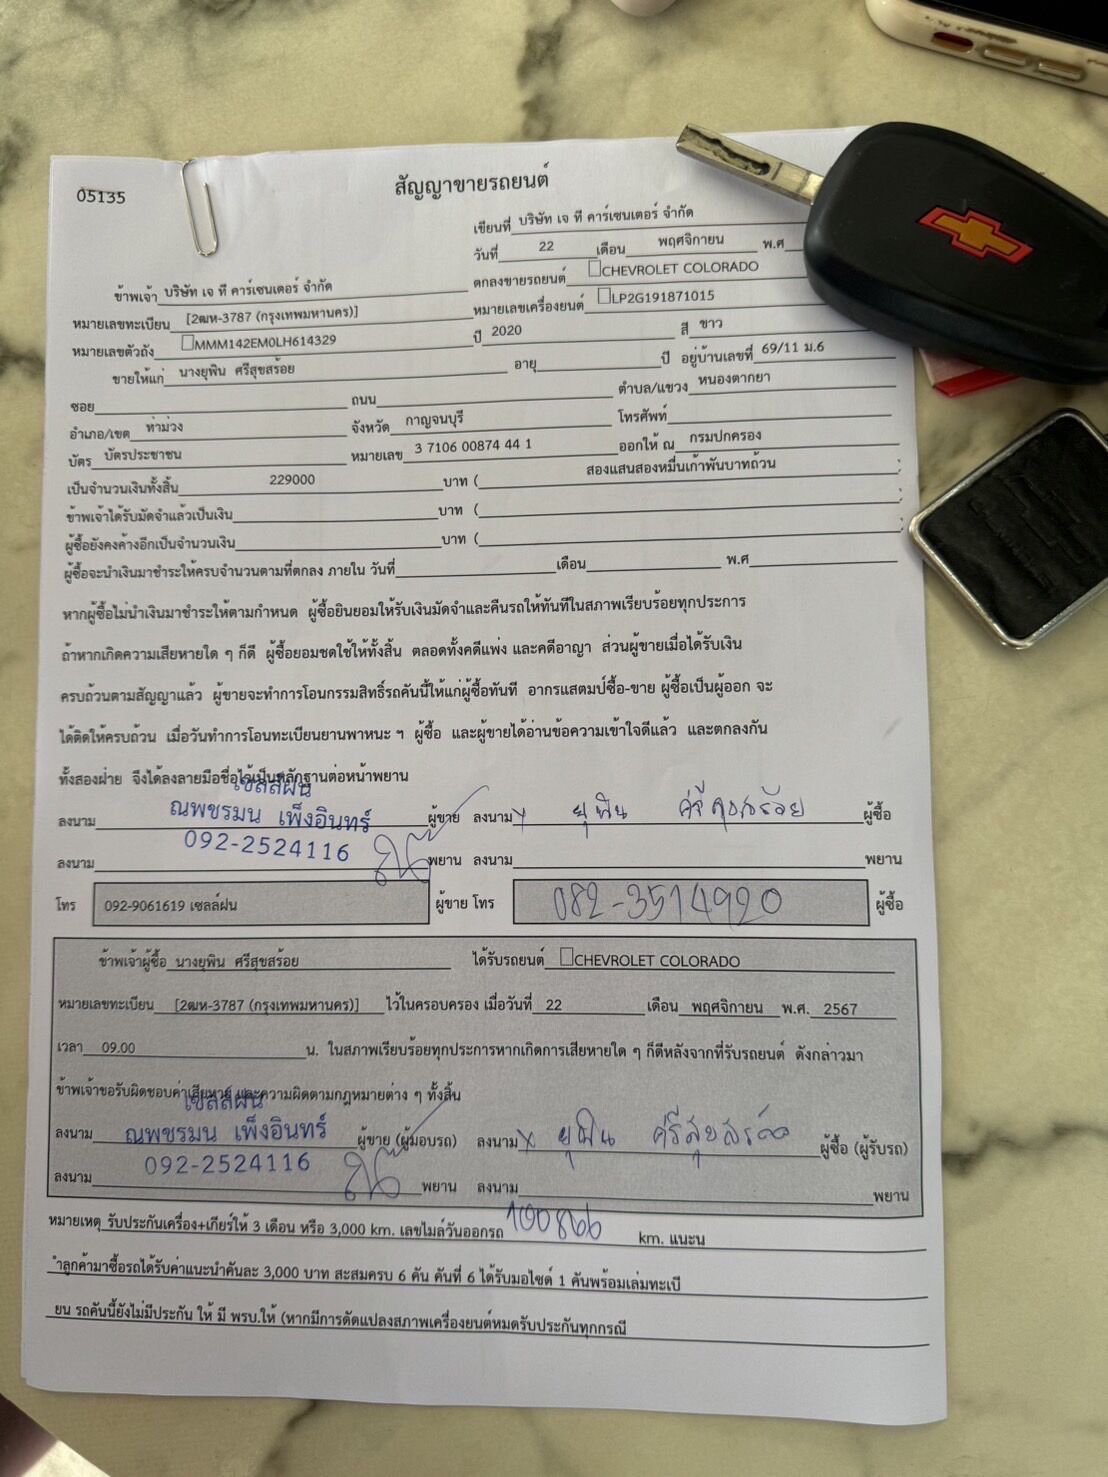 05135
สัญญาขายรถยนต์
เขียนที่ บริษัท เจ ที คาร์เซนเตอร์ จำกัด
วันที่ 22 เดือน พฤศจิกายน พ.ศ
ข้าพเจ้า บริษัท เจ ที คาร์เซนเตอร์ จำกัด ตกลงขายรถยนต์ CHEVROLET COLORADO
หมายเลขทะเบียน [2ฒห-3787 (กรุงเทพมหานคร)] หมายเลขเครื่องยนต์ LP2G191871015
หมายเลขตัวถัง MMM142EM0LH614329 ปี 2020 สี ขาว
ขายให้แก่ นางยุพิน ศรีสุขสร้อย อายุ ปี อยู่บ้านเลขที่ 69/11 ม.6
ซอย ถนน ตำบล/แขวง หนองตากยา
อำเภอ/เขต ท่าม่วง จังหวัด กาญจนบุรี โทรศัพท์
บัตร บัตรประชาชน หมายเลข 3 7106 00874 44 1 ออกให้ ณ กรมปกครอง
เป็นจำนวนเงินทั้งสิ้น 229000 บาท ( สองแสนสองหมื่นเก้าพันบาทถ้วน )
ข้าพเจ้าได้รับมัดจำแล้วเป็นเงิน บาท ( )
ผู้ซื้อยังคงค้างอีกเป็นจำนวนเงิน บาท ( )
ผู้ซื้อจะนำเงินมาชำระให้ครบจำนวนตามที่ตกลง ภายใน วันที่ เดือน พ.ศ
หากผู้ซื้อไม่นำเงินมาชำระให้ตามกำหนด ผู้ซื้อยินยอมให้รับเงินมัดจำและคืนรถให้ทันทีในสภาพเรียบร้อยทุกประการ
ถ้าหากเกิดความเสียหายใด ๆ ก็ดี ผู้ซื้อยอมชดใช้ให้ทั้งสิ้น ตลอดทั้งคดีแพ่ง และคดีอาญา ส่วนผู้ขายเมื่อได้รับเงิน
ครบถ้วนตามสัญญาแล้ว ผู้ขายจะทำการโอนกรรมสิทธิ์รถคันนี้ให้แก่ผู้ซื้อทันที อากรแสตมป์ซื้อ-ขาย ผู้ซื้อเป็นผู้ออก จะ
ได้ติดให้ครบถ้วน เมื่อวันทำการโอนทะเบียนยานพาหนะ ฯ ผู้ซื้อ และผู้ขายได้อ่านข้อความเข้าใจดีแล้ว และตกลงกัน
ทั้งสองฝ่าย จึงได้ลงลายมือชื่อไว้เป็นหลักฐานต่อหน้าพยาน
เซลส์ฝน
ลงนาม ณพชรมน เพ็งอินทร์ ผู้ขาย ลงนาม x ยุพิน ศรีสุขสร้อย ผู้ซื้อ
092-2524116
ลงนาม พยาน ลงนาม พยาน
โทร 092-9061619 เซลล์ฝน ผู้ขาย โทร 082-3514920 ผู้ซื้อ
ข้าพเจ้าผู้ซื้อ นางยุพิน ศรีสุขสร้อย ได้รับรถยนต์ CHEVROLET COLORADO
หมายเลขทะเบียน [2ฒห-3787 (กรุงเทพมหานคร)] ไว้ในครอบครอง เมื่อวันที่ 22 เดือน พฤศจิกายน พ.ศ. 2567
เวลา 09.00 น. ในสภาพเรียบร้อยทุกประการหากเกิดการเสียหายใด ๆ ก็ดีหลังจากที่รับรถยนต์ ดังกล่าวมา
ข้าพเจ้าขอรับผิดชอบค่าเสียหาย และความผิดตามกฎหมายต่าง ๆ ทั้งสิ้น
เซลส์ฝน
ลงนาม ณพชรมน เพ็งอินทร์ ผู้ขาย (ผู้มอบรถ) ลงนาม x ยุพิน ศรีสุขสร้อย ผู้ซื้อ (ผู้รับรถ)
092-2524116
ลงนาม พยาน ลงนาม พยาน
หมายเหตุ รับประกันเครื่อง+เกียร์ให้ 3 เดือน หรือ 3,000 km. เลขไมล์วันออกรถ 100866 km. แนะน
ำลูกค้ามาซื้อรถได้รับค่าแนะนำคันละ 3,000 บาท สะสมครบ 6 คัน คันที่ 6 ได้รับมอไซต์ 1 คันพร้อมเล่มทะเบี
ยน รถคันนี้ยังไม่มีประกัน ให้ มี พรบ.ให้ (หากมีการดัดแปลงสภาพเครื่องยนต์หมดรับประกันทุกกรณี